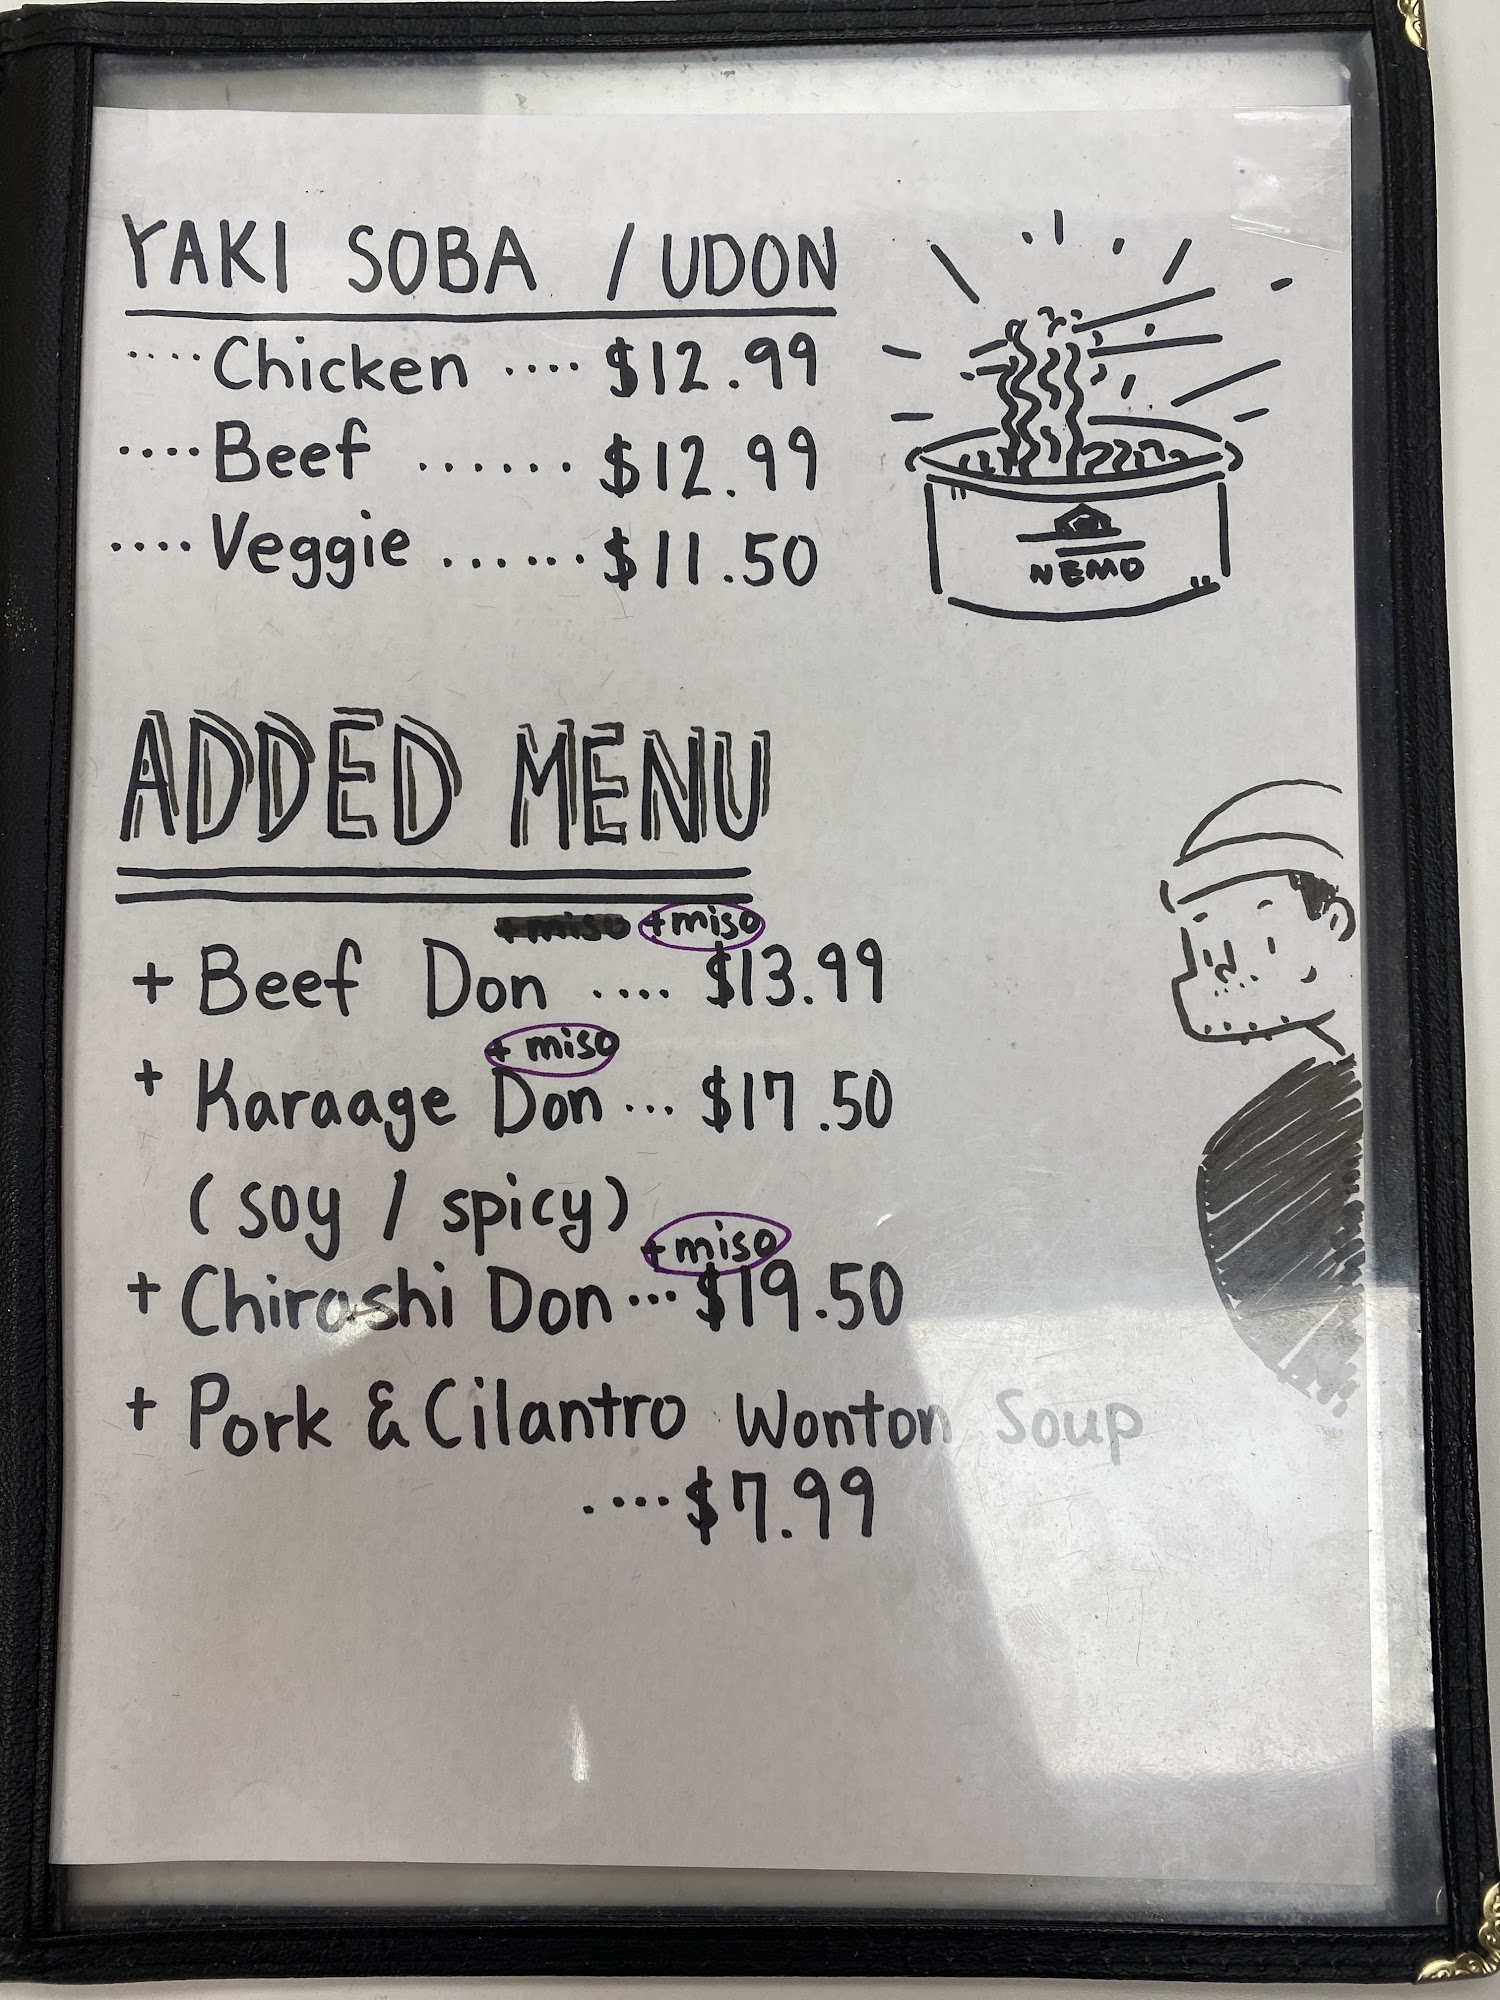 YAKI SOBA / UDON
.... Chicken .... $12.99
.... Beef ...... $12.99
.... Veggie ...... $11.50
NEMO
ADDED MENU
+miso +miso
+ Beef Don .... $13.99
+ miso
+ Karaage Don ... $17.50
(soy / spicy)
+miso
+ Chirashi Don ... $19.50
+ Pork & Cilantro Wonton Soup
.... $7.99